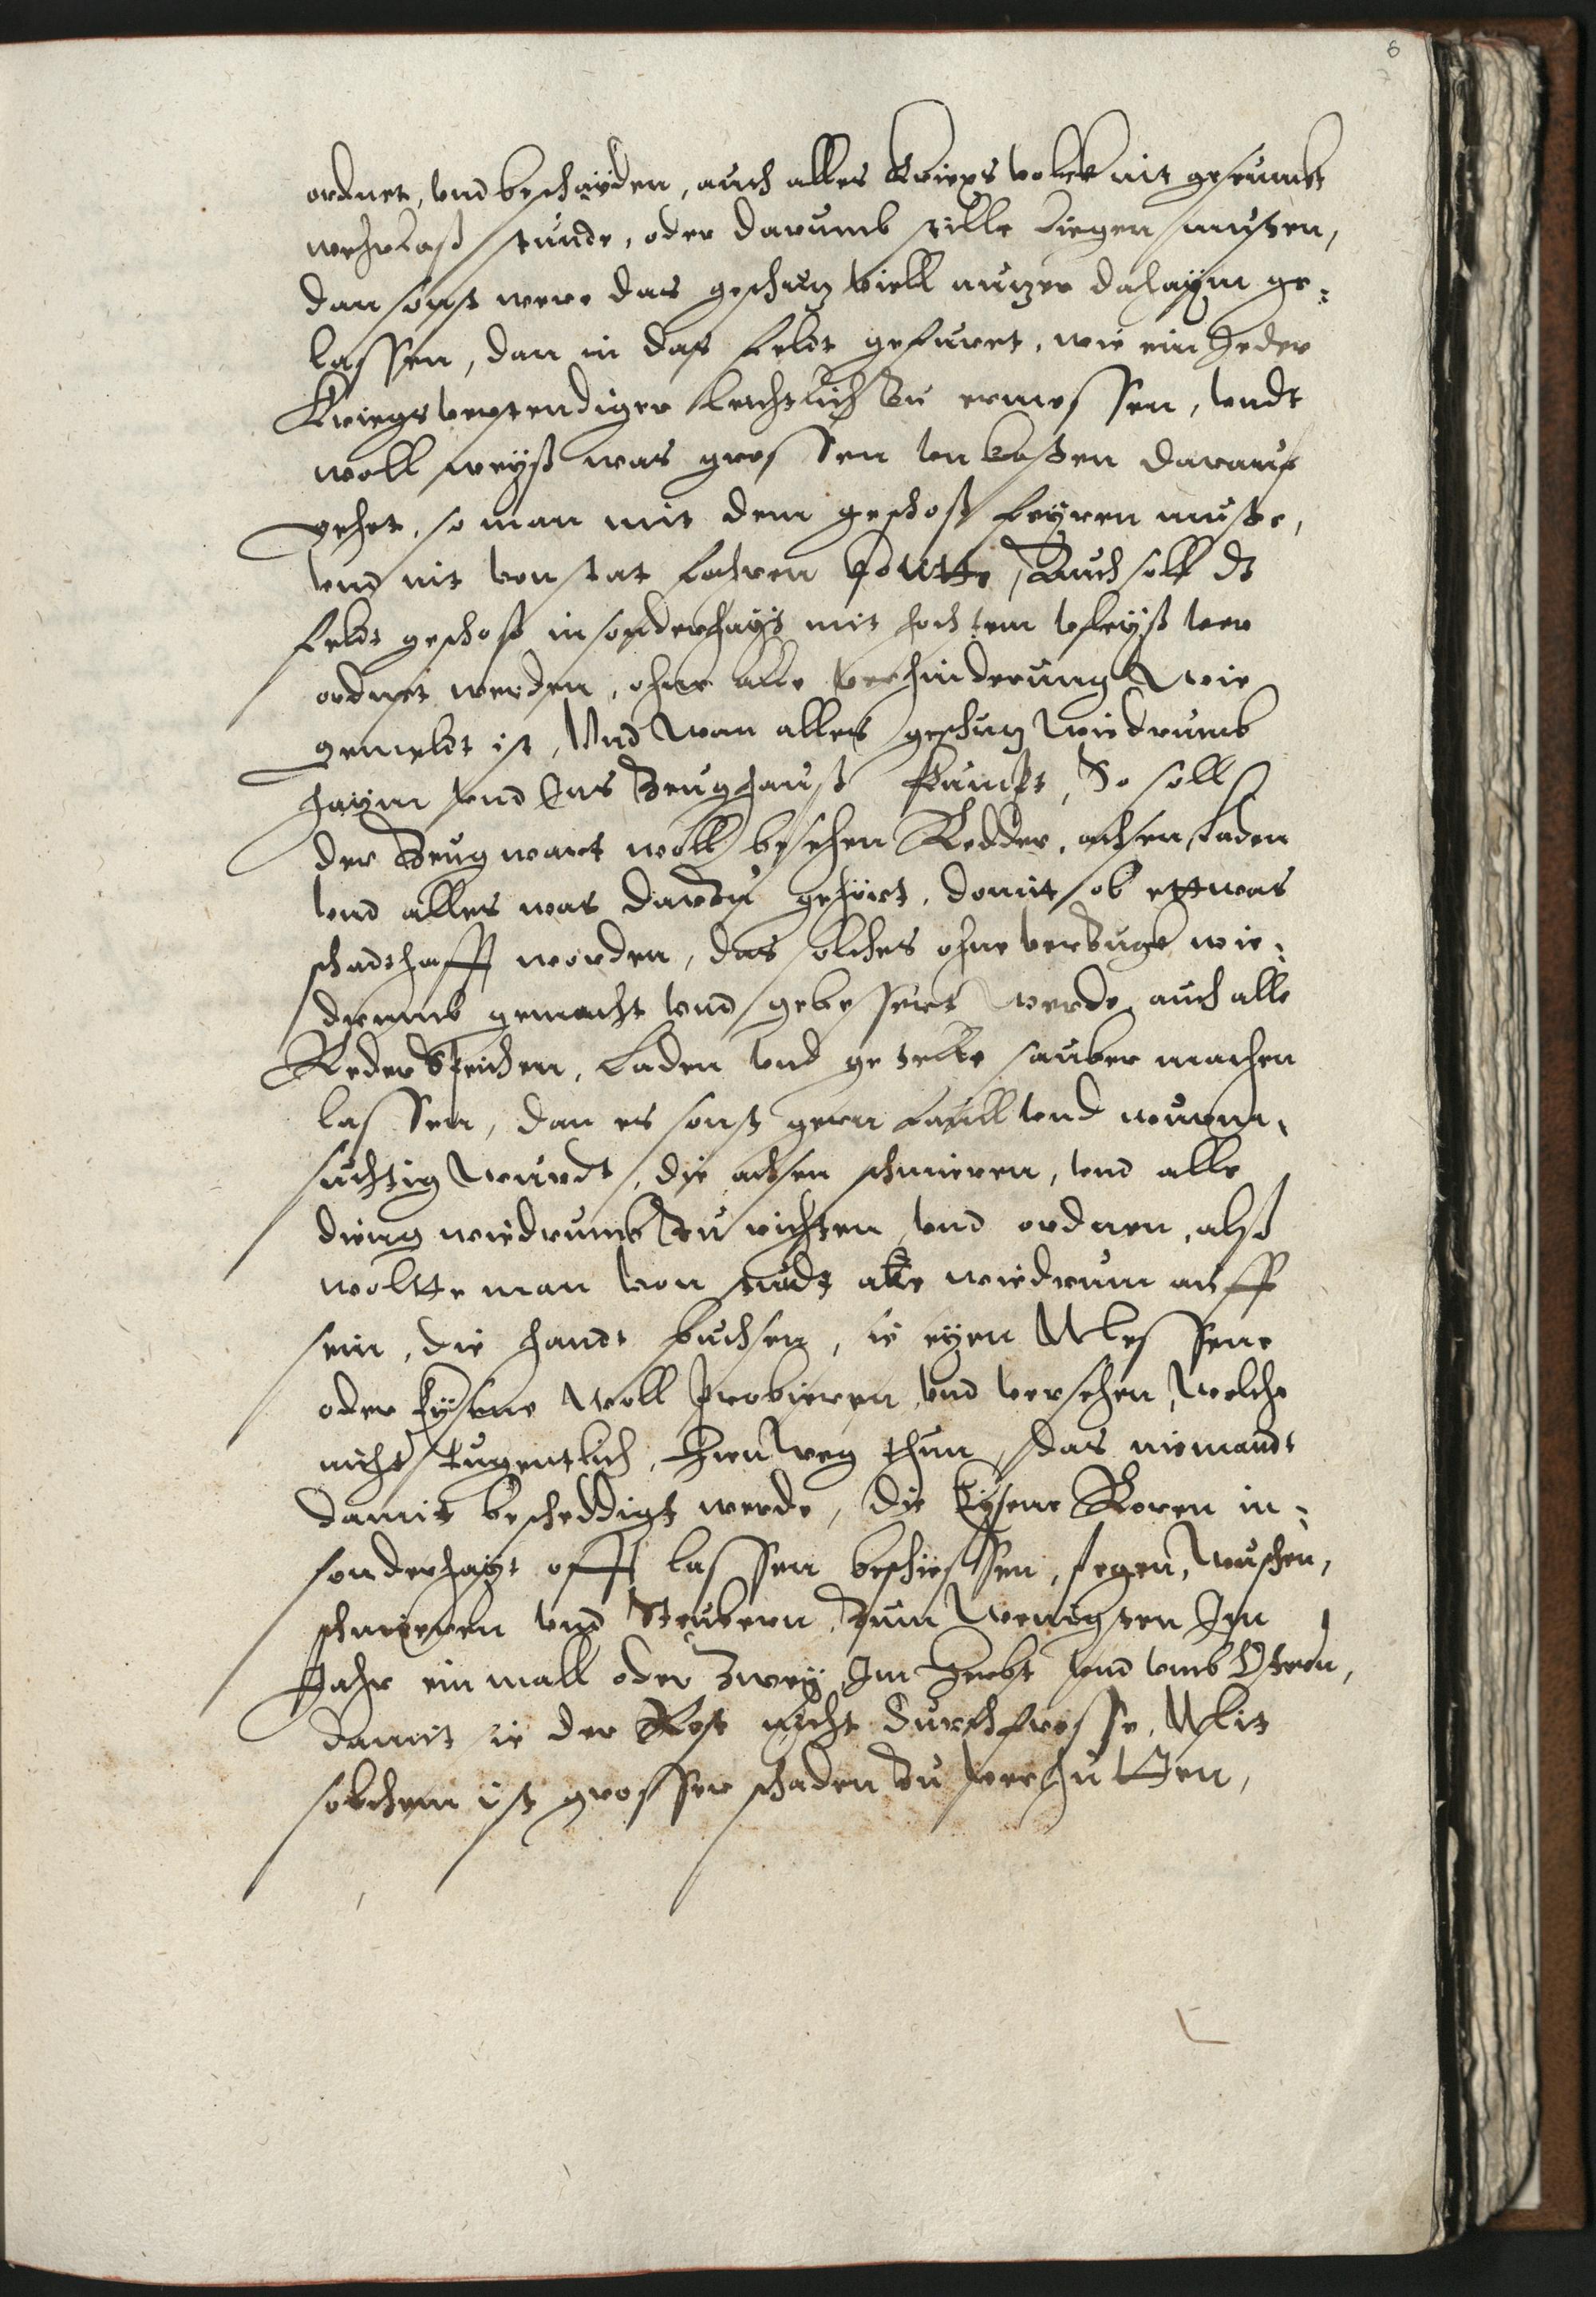 6
ordnet, vnd beschayden, auch alles Kriegs volck nit gesumbt
wehrlaß stunde, oder darumb stille liegen musten,
dan sonst were das geschutz viell nutzer dahaym ge-
lassen, dan in das feldt gefuret, wie ein Jeder
Kriegs verstendiger leichtlich zu ermessen, vndt
woll weyß was grossen vnkosten darauf
gehet, so man mit dem geschoß feyren muste,
vnd nit von stat fahren kontte, Auch soll dz
feldt geschoß in sonderhayt mit hochstem vleyß ver
ordnet werden, ohne alle verhinderung wie
gemeldt ist, Vnd wan alles geschutz wiedrumb
haym vnd Ins Zeughauß kumbt, So soll
der Zeugwart woll besehen Redder, achsen, laden
vnd alles was darzu gehört, domit ob ettwas
schadthafft worden, das solches ohne verzugk wie-
drumb gemacht vnd gebessert werde, auch alle
Reder Speichen, Laden vnd gestelle sauber machen
lassen, dan es sonst gern faull vnd wurm-
suchtig wurdt, die achsen schmieren, vnd alle
dieng wiedrumb zu richten vnd ordnen, alß
woltte man von stundt alle wiedrum auff
sein, die handt buchsen, sie seyen Messene
oder Eysene woll probieren vnd versehen, welche
nicht tugentlich, hinweg thun, das niemandt
damit bescheddigt werde, die Eysene Roren in-
sonderhayt offt lassen beschiessen, fegen, wuschen,
schmieren vnd Seubern, zum wenigsten Im
Jahr ein mall oder zwey, Im herbst vnd vmb Ostern,
damit sie der Rost nicht durchfresse, Mit
solchem ist grosser schaden zu verhutten,